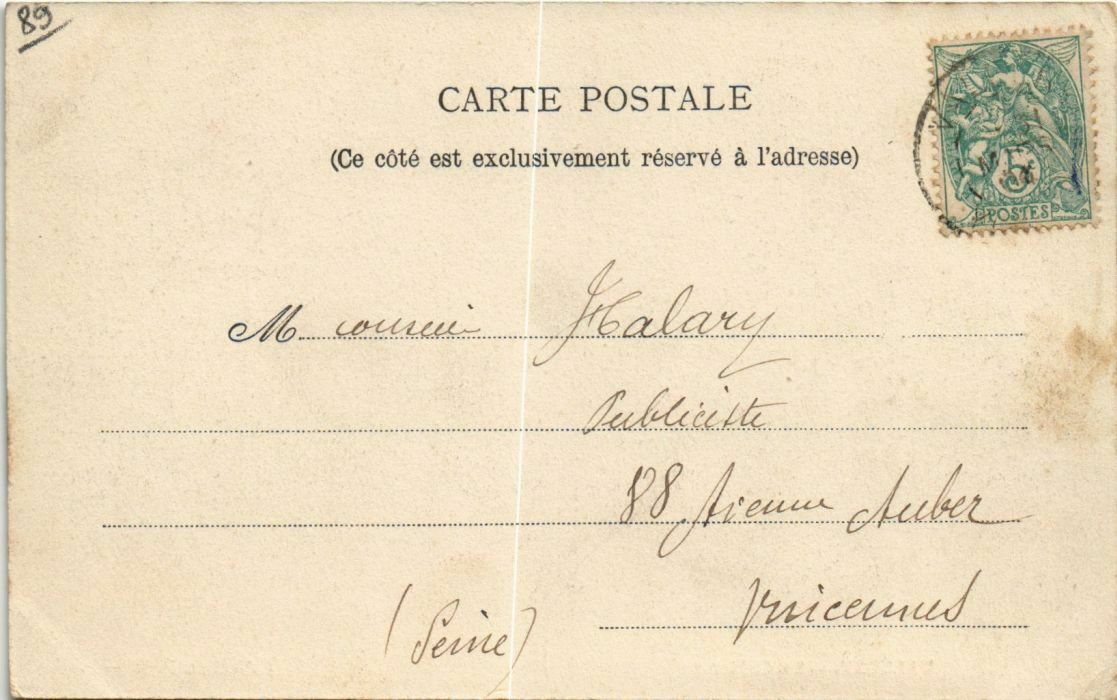 89
CARTE POSTALE
(Ce côté est exclusivement réservé à l'adresse)
5
POSTES
Monsieur Halary
Publiciste
88 Avenue Auber
Vincennes
(Seine)